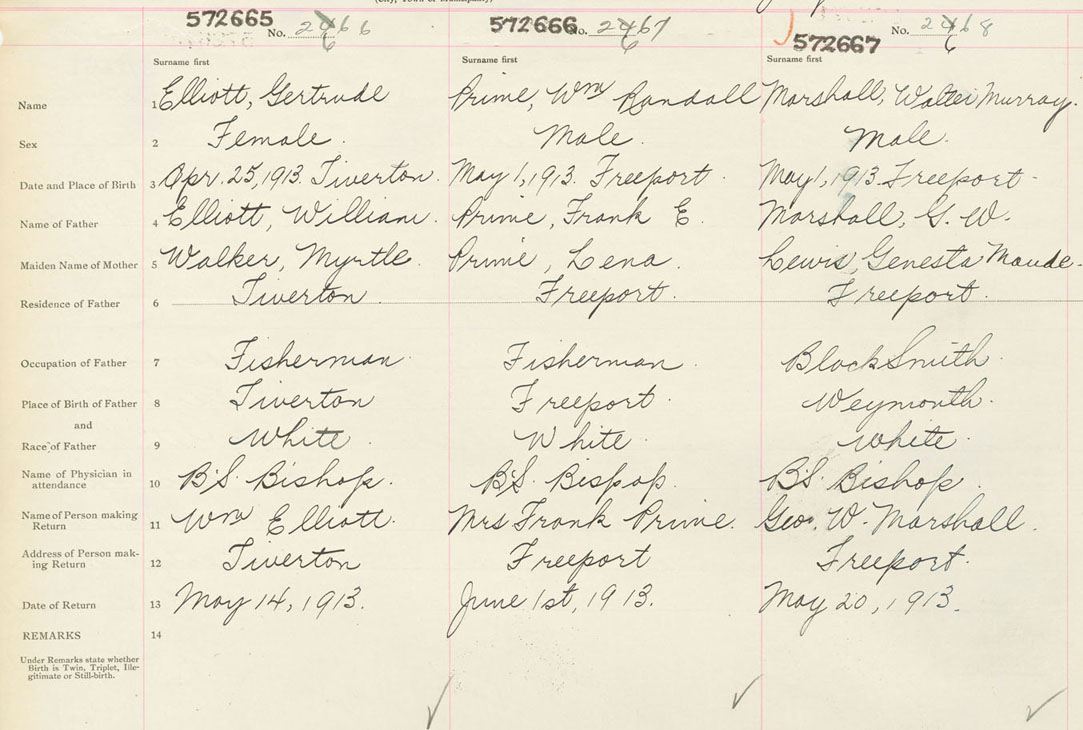 (City, Town or Municipality)
572665 No. 2466 6 572666 No. 2467 6 572667 No. 2468 6
Surname first Surname first Surname first
Name 1 Elliott, Gertrude Prime, Wm Randall Marshall, Walter Murray.
Sex 2 Female. Male. Male.
Date and Place of Birth 3 Apr. 25, 1913. Tiverton. May 1, 1913. Freeport. May 1, 1913 Freeport.
Name of Father 4 Elliott, William. Prime, Frank E. Marshall, G. W.
Maiden Name of Mother 5 Walker, Myrtle. Prime, Lena. Lewis, Genesta Maude.
Residence of Father 6 Tiverton. Freeport. Freeport.
Occupation of Father 7 Fisherman. Fisherman. BlackSmith.
Place of Birth of Father 8 Tiverton Freeport. Weymouth.
and
Race of Father 9 White. White. White.
Name of Physician in
attendance 10 B.S. Bishop. B.S. Bispop. B.S. Bishop.
Name of Person making
Return 11 Wm Elliott. Mrs Frank Prime. Geo. W. Marshall.
Address of Person mak-
ing Return 12 Tiverton Freeport Freeport.
Date of Return 13 May 14, 1913. June 1st, 1913. May 20, 1913.
REMARKS 14
Under Remarks state whether
Birth is Twin, Triplet, Ille-
gitimate or Still-birth.